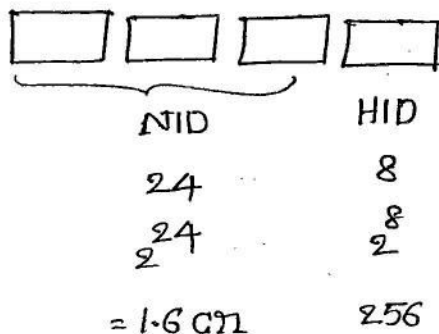 NID HID
24 8
2^24 2^8
= 1.6 256